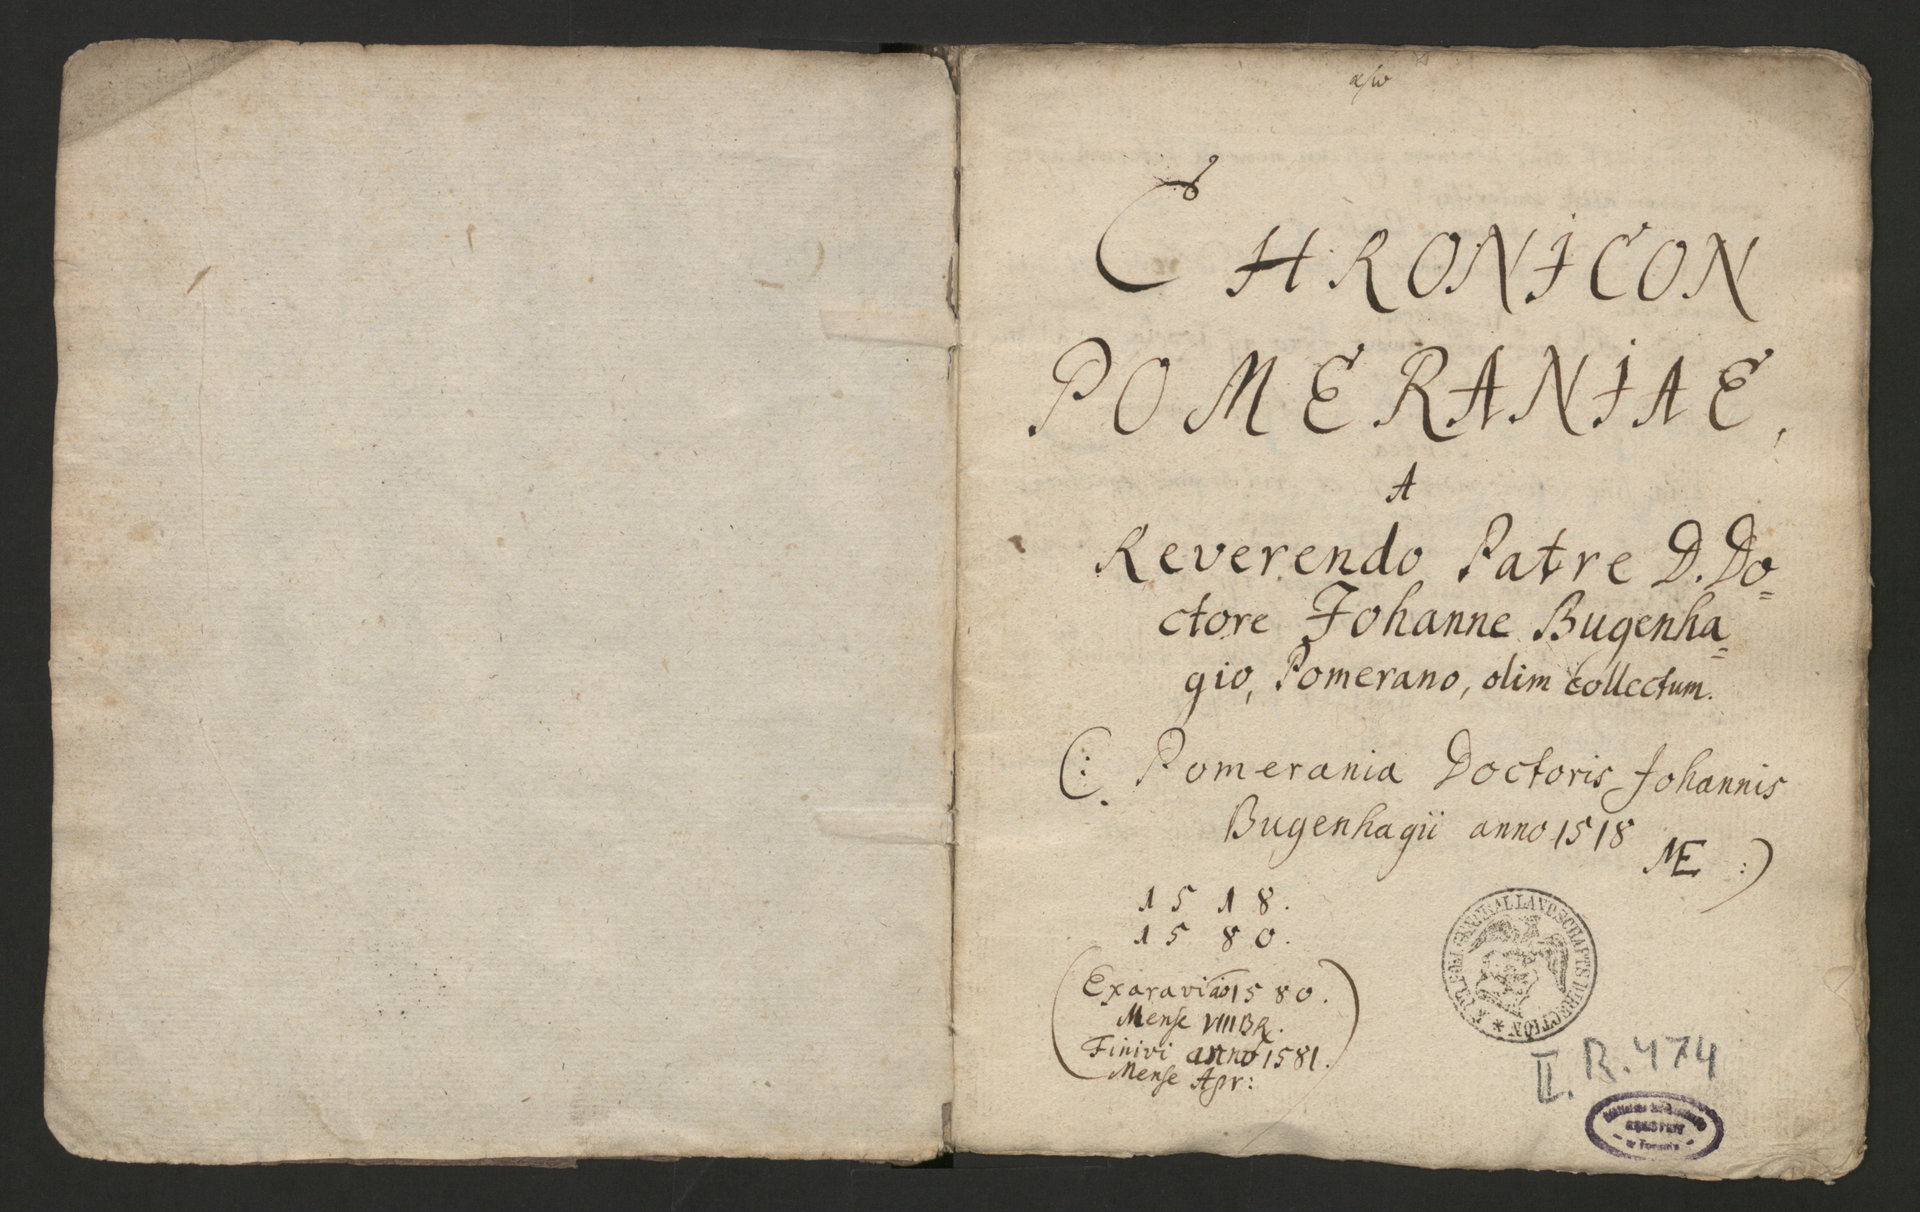 CHRONICON
POMERANIAE,
A
Reverendo Patre D. Do=
ctore Johanne Bugenha=
gio, Pomerano, olim collectum.
(: Pomerania Doctoris Johannis
Bugenhagii anno 1518
ME :)
1518.
1580.
(Exaravi ao 1580.
Mense VIIIBR.
Finivi anno 1581.
Mense Apr:)
GENERALLANDSCHAFTSDIRECTION
II. R. 474
w Toruniu